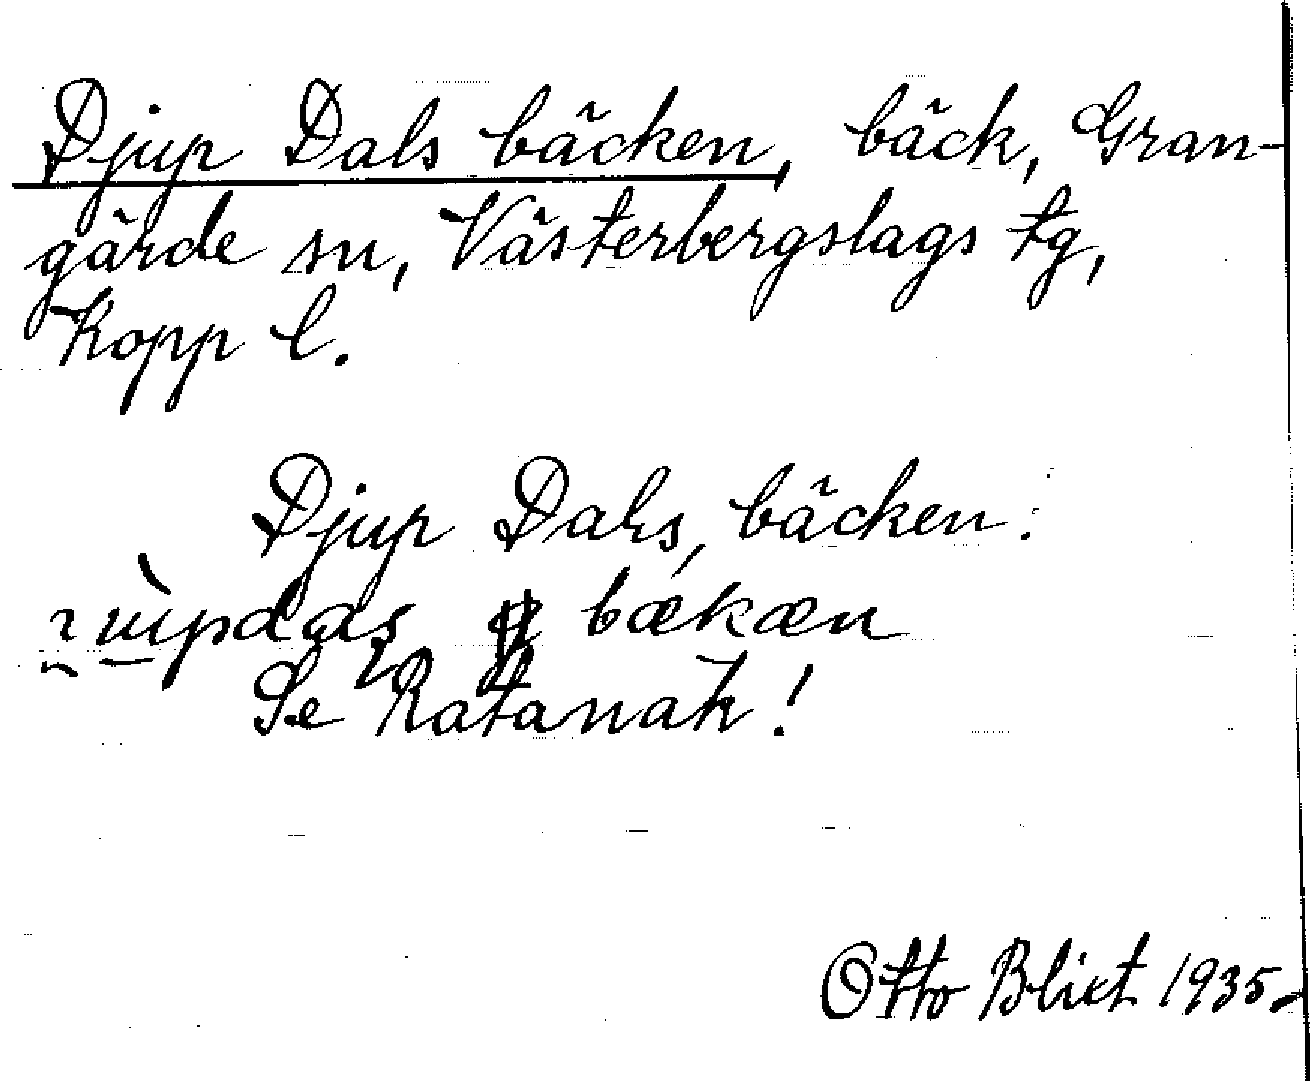 Djup Dals bäcken, bäck, Gran-
gärde sn, Västerbergslags tg,
Kopp l.
Djup Dals, bäcken:
bækæn
Se Ratanak!
Otto Blixt 1935.